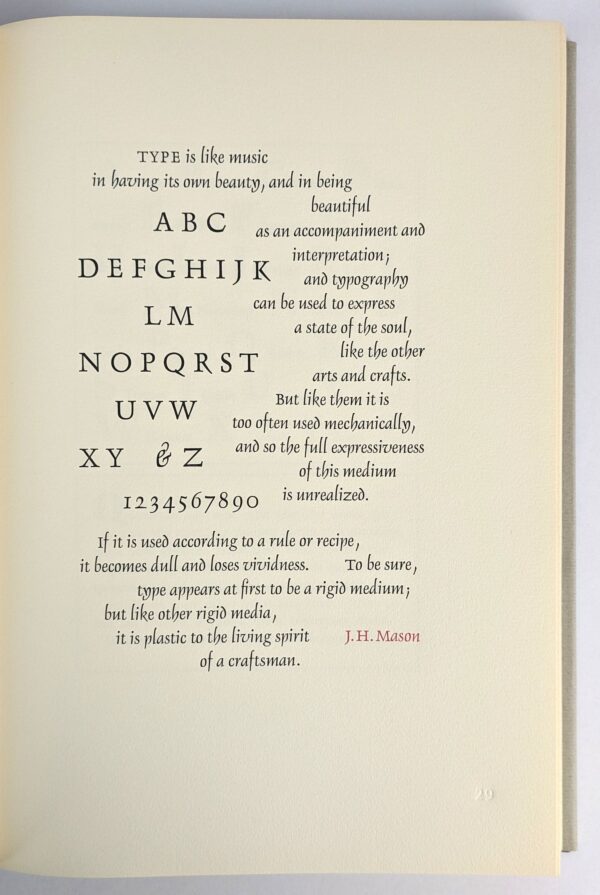 TYPE is like music
in having its own beauty, and in being
beautiful
as an accompaniment and
interpretation;
and typography
can be used to express
a state of the soul,
like the other
arts and crafts.
But like them it is
too often used mechanically,
and so the full expressiveness
of this medium
is unrealized.
ABC
DEFGHIJK
LM
NOPQRST
UVW
XY & Z
1234567890
If it is used according to a rule or recipe,
it becomes dull and loses vividness. To be sure,
type appears at first to be a rigid medium;
but like other rigid media,
it is plastic to the living spirit
of a craftsman.
J.H. Mason
29